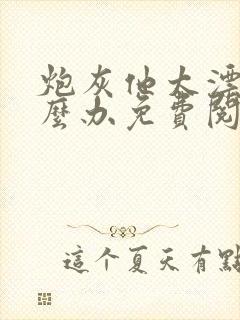 炮灰他太漂
麼办免費閱
這个夏天有點